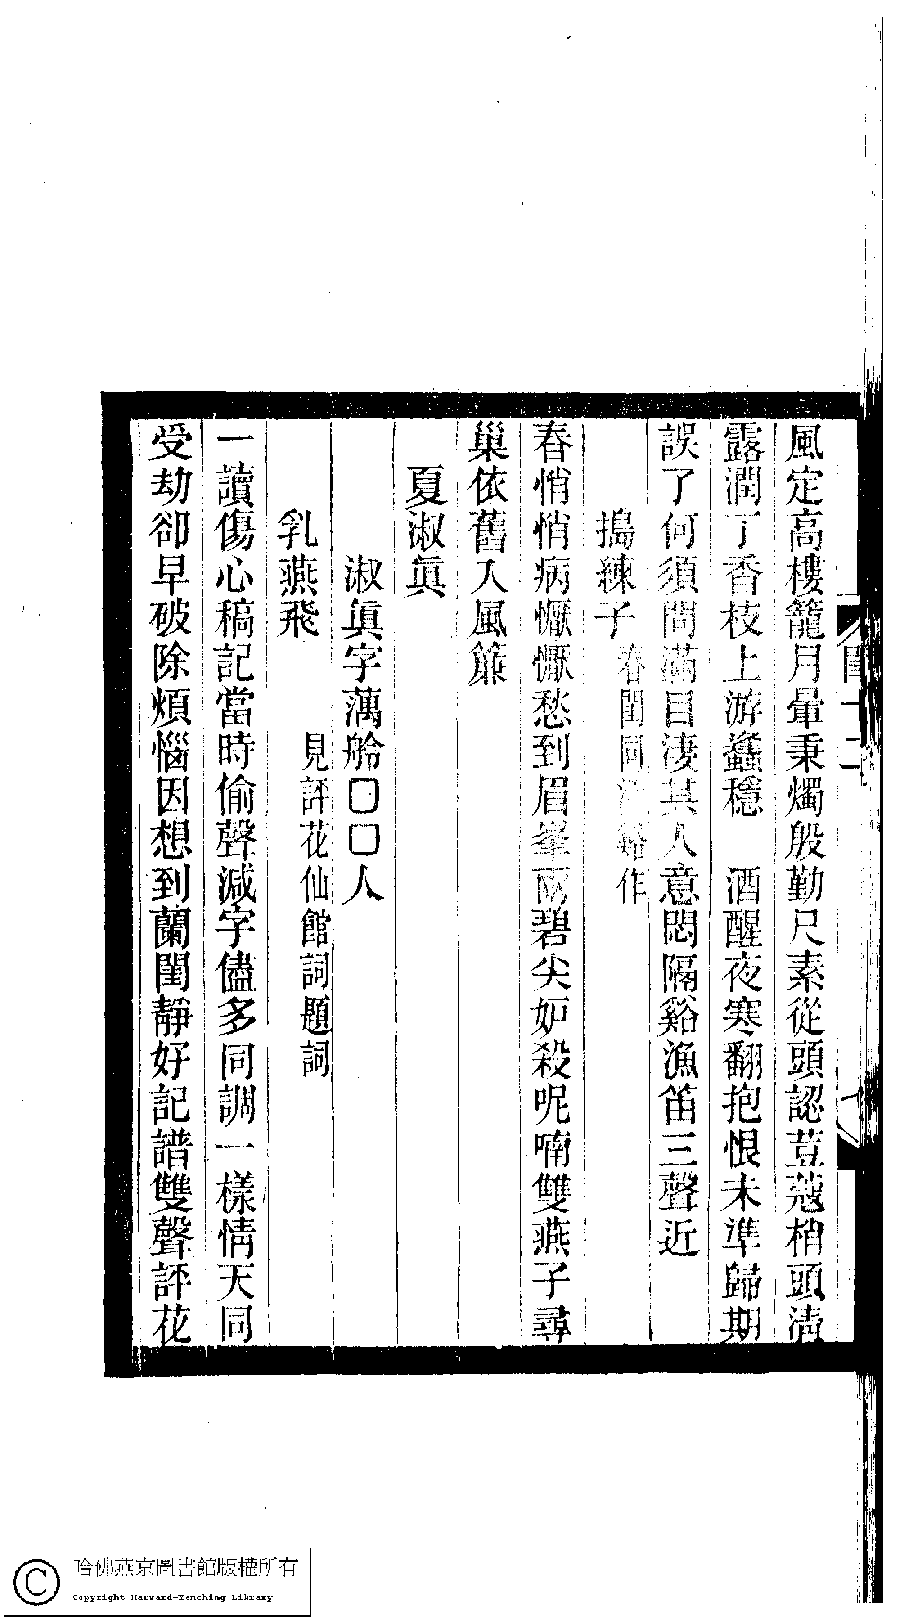 風定高樓籠月暈秉燭殷勤尺素從頭認荳蔻梢頭淸
露潤了香枝上游蠭穩　酒醒夜寒翻抱恨未準歸期
誤了何須問滿目淒其人意悶隔谿漁笛三聲近
搗練子　春閨同作
春悄悄病懨懨愁到眉峯兩碧尖妒殺呢喃雙燕子尋
巢依舊入風簾
夏淑眞
淑眞字藕舲□□人
乳燕飛　見評花仙館詞題詞
一讀傷心稿記當時偷聲減字儘多同調一樣情天同
受劫卻早破除煩惱因想到蘭閨靜好記譜雙聲評花
閨十二
哈佛燕京圖書館版權所有
Copyright Harvard-Yenching Library